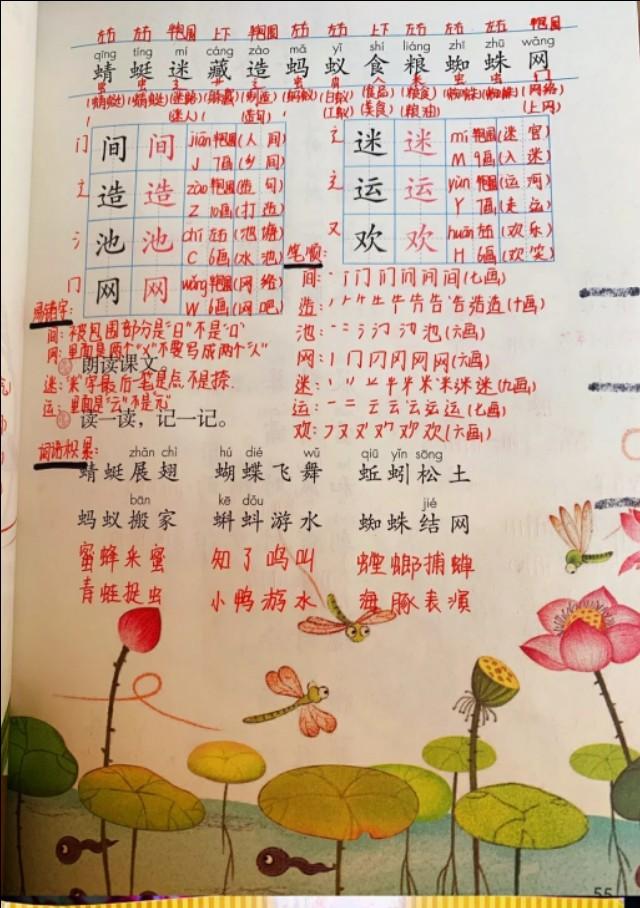 左右 左右 半包围 上下 半包围 左右 左右 上下 左右 左右 左右 半包围
qīng tíng mí cáng zào mǎ yǐ shí liáng zhī zhū wǎng
蜻 蜓 迷 藏 造 蚂 蚁 食 粮 蜘 蛛 网
虫 虫 辶 艹 辶 虫 虫 食 米 虫 虫 冂
(蜻蜓) (蜻蜓) (迷路) (躲藏) (制造) (蚂蚁) (白蚁) (食品) (粮食) (蜘蛛) (蜘蛛) (网络)
(迷人) (造句) (工蚁) (美食) (粮油) (上网)
门 间 间 jiān 半包围 (人间)
J 7画 (乡间)
辶 造 造 zào 半包围 (造句)
Z 10画 (打造)
氵 池 池 chí 左右 (池塘)
C 6画 (水池)
冂 网 网 wǎng 半包围 (网络)
W 6画 (网吧)
辶 迷 迷 mí 半包围 (迷宫)
M 9画 (入迷)
辶 运 运 yùn 半包围 (运河)
Y 7画 (走运)
又 欢 欢 huān 左右 (欢乐)
H 6画 (欢笑)
易错字:
间: 被包围部分是"日"不是"口"
网: 里面是两个"乂"不要写成两个"人"
朗读课文。
迷: "米"字最后一笔是点,不是捺.
运: 里面是"云"不是"元"
读一读，记一记。
笔顺:
间: 门 问 间 间 (七画)
造: 牛 告 造 造 (十画)
池: 氵 池 (六画)
网: 丨 冂 冈 网 网 (六画)
迷: 半 米 迷 迷 (九画)
运: 一 二 云 云 运 运 (七画)
欢: フ 又 欢 (六画)
词语积累:
zhǎn chì hú dié wǔ qiū yǐn sōng
蜻蜓展翅 蝴蝶飞舞 蚯蚓松土
bān kē dǒu jié
蚂蚁搬家 蝌蚪游水 蜘蛛结网
蜜蜂采蜜 知了鸣叫 螳螂捕蝉
青蛙捉虫 小鸭游水 海豚表演
55